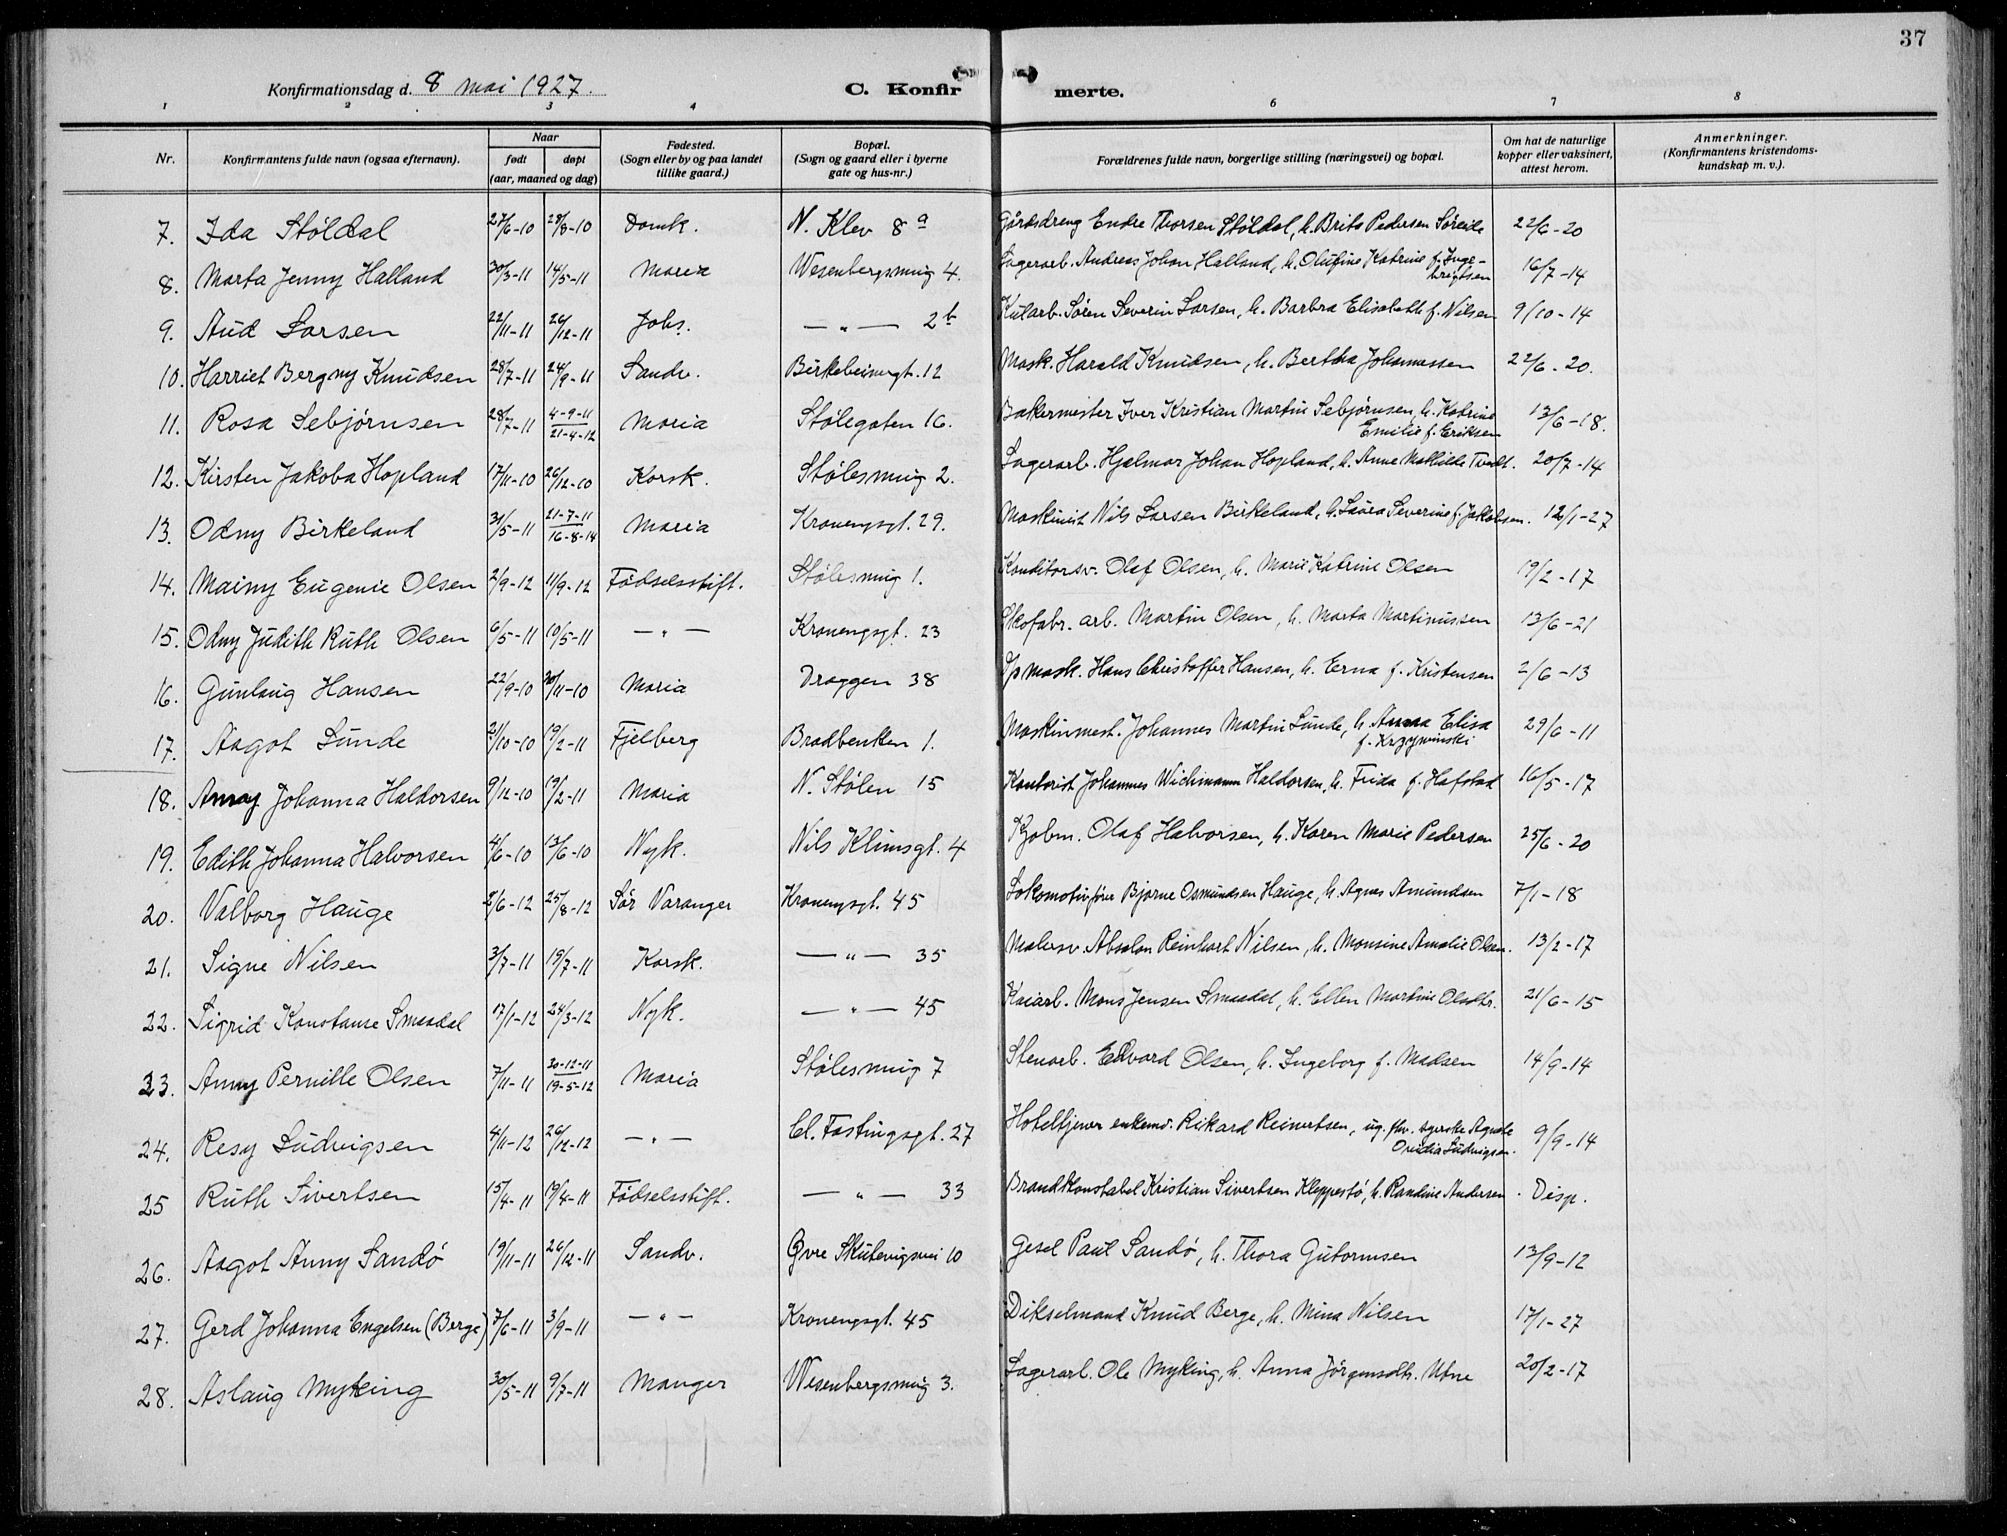 37
Konfirmationsdag d. 8 mai 1927.
C. Konfir merte.
1 2 3 4 6 7 8
Nr.
Konfirmantens fulde navn (ogsaa efternavn).
Naar
født døpt
(aar, maaned og dag)
Fødested.
(Sogn eller by og paa landet
tillike gaard.)
Bopæl.
(Sogn og gaard eller i byerne
gate og hus-nr.)
Forældrenes fulde navn, borgerlige stilling (næringsvei) og bopæl.
Om hat de naturlige
kopper eller vaksinert,
attest herom.
Anmerkninger.
(Konfirmantens kristendoms-
kundskap m. v.).
7. Ida Støldal 27/6-10 28/8-10 Domk. N. Klev 8 a Gårdsdreng Endre Thorsen Støldal, h. Brita Pedersen Søreide 22/6-20
8. Marta Jenny Halland 30/3-11 14/5-11 Maria Wesenbergsmug 4. Lagerarb. Andreas Johan Halland, h. Olufine Katrine f. Inge-
brigtsen 16/7-14
9. Aud Larsen 22/11-11 26/12-11 Johs. — " — 2 b Kularb. Søren Severin Larsen, h. Barbra Elisabeth f. Nilsen 9/10-14
10. Harriet Bergny Knudsen 28/7-11 24/9-11 Sandv. Birkebeinergt. 12 Mask. Harald Knudsen, h. Bertha Johannassen 22/6-20.
11. Rosa Sebjørnsen 28/7-11 4-9-11
21-4-12 Maria Stølegaten 16. Bakermester Iver Kristian Martin Sebjørnsen, h. Katrine
Emilie f. Eriksen 13/6-18.
12. Kirsten Jakoba Hopland 17/11-10 26/12-10 Korsk. Stølesmug 2. Lagerarb. Hjalmar Johan Hopland, h. Anne Mathilde Tvedt. 20/7-14
13. Odny Birkeland 31/5-11 21-7-11
16-8-14 Maria Kronengsgt. 29. Maskinist Nils Larsen Birkeland, h. Laura Severine f. Jakobsen. 12/1-27
14. Mainy Eugenie Olsen 2/9-12 11/9-12 Fødselsstift. Stølesmug 1. Konditorsv. Olaf Olsen, h. Marie Katrine Olsen 19/2-17
15. Odny Judith Ruth Olsen 6/5-11 10/5-11 — " — Kronengsgt. 23 Skofabr. arb. Martin Olsen, h. Marta Martinussen 13/6-21
16. Gunlaug Hansen 22/9-10 20/11-10 Maria Dræggen 38 D/p mask. Hans Christoffer Hansen, h. Erna f. Kristensen 2/6-13
17. Aagot Lunde 21/10-10 19/2-11 Fjelberg Bradbenken 1. Maskinmest. Johannes Martin Lunde, h. Anna Elisa
f. Krzywinski 29/6-11
18. Annay Johanna Haldorsen 9/12-10 19/2-11 Maria N. Stølen 15 Kontorist Johannes Wichmann Haldorsen, h. Frida f. Hafstad 16/5-17
19. Edith Johanna Halvorsen 4/6-10 13/6-10 Nyk. Nils Klimsgt. 4 Kjøbm. Olaf Halvorsen, h. Karen Marie Pedersen 25/6-20
20. Valborg Hauge 2/6-12 25/8-12 Sør Varanger Kronengsgt. 45 Lokomotivfører Bjarne Osmundsen Hauge, h. Agnes Amundsen 7/1-18
21. Signe Nilsen 3/7-11 19/7-11 Korsk. — " — 35 Malersv. Absalon Reinhart Nilsen, h. Monsine Amalie Olsen. 13/2-17
22. Sigrid Konstanse Smaadal 17/1-12 24/3-12 Nyk. — " — 45 Kaiarb. Mons Jensen Smaadal, h. Ellen Martine Olsdtr. 21/6-15
23. Anny Pernille Olsen 7/11-11 30-12-11
19-5-12 Maria Stølesmug 7 Stenarb. Edvard Olsen, h. Ingeborg f. Madsen 14/9-14
24. Resy Ludvigsen 4/11-12 26/12-12 — " — Cl. Fastingsgt. 27 Hoteltjener enkem. Rikard Reinertsen, ug. fhv. syerske Agnete
Ovidia Ludvigsen. 9/9-14
25 Ruth Sivertsen 15/4-11 19/4-11 Fødselsstift. — " — 33 Brandkonstabel Kristian Sivertsen Kleppestø, h. Randine Andersen. Disp.
26. Aagot Anny Sandø 19/11-11 26/12-11 Sandv. Øvre Skutevigsvei 10 Gesel Paul Sandø, h. Thora Gutormsen 13/9-12
27. Gerd Johanna Engelsen (Berge) 7/6-11 3/9-11 — " — Kronengsgt. 45 Dikselmand Knud Berge, h. Mina Nilsen 17/1-27
28. Aslaug Myking 30/5-11 9/7-11 Manger Wesenbergsmug 3. Lagerarb. Ole Myking, h. Anna Jørgensdtr. Utne 20/2-17